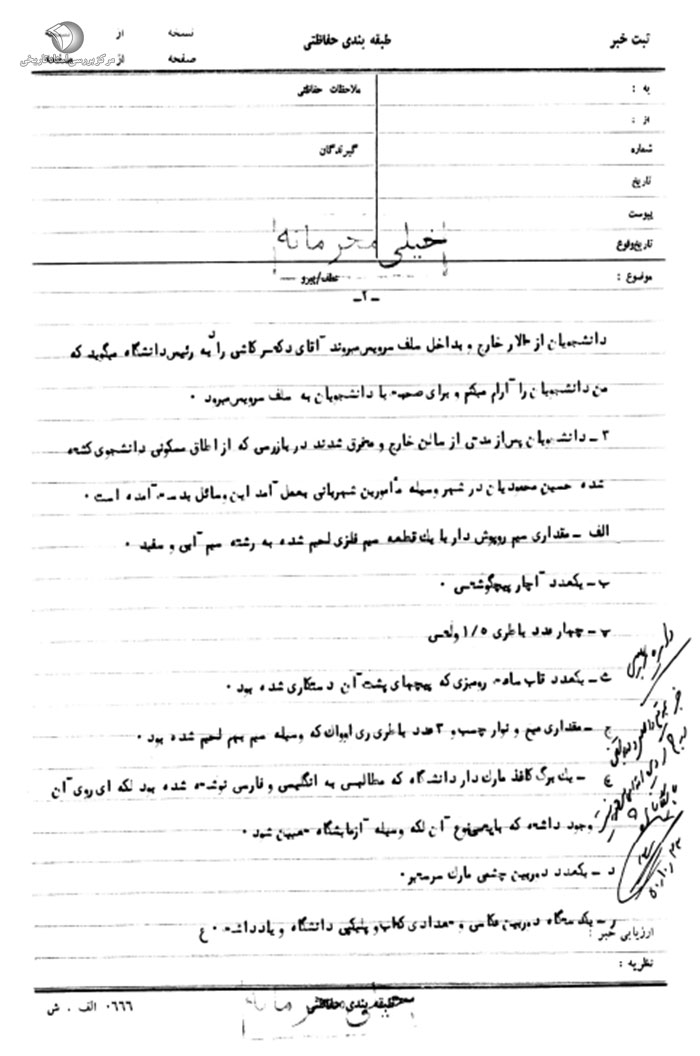 ثبت خبر
طبقه بندی حفاظتی
نسخه از نسخه
صفحه از صفحه
مرکز بررسی اسناد تاریخی
به :
ملاحظات حفاظتی
از :
شماره
گیرندگان
تاریخ
پیوست
خیلی محرمانه
تاریخ وقوع
موضوع :
عطف/پیرو
-۲-
دانشجویان از تالار خارج و بداخل سلف سرویس میروند آقای دکتر کاشی را به رئیس دانشگاه میگوید که
من دانشجویان را آرام میکنم و برای صحبت با دانشجویان به سلف سرویس میرود ۰
۳ ـ دانشجویان پس از مدتی از سالن خارج و متفرق شدند در بازرسی که از اطاق مسکونی دانشجوی کشته
شده حسین محمودیان در شهر وسیله مأمورین شهربانی بعمل آمد این وسائل بدست آمده است ۰
الف ـ مقداری سیم روپوش دار با یک قطعه سیم فلزی لحیم شده به رشته سیم آبی و سفید ۰
ب ـ یکعدد آچار پیچگوشتی ۰
پ ـ چهار عدد باطری ۱/۵ ولتی
ث ـ یکعدد قاب ساعت رومیزی که پیچهای پشت آن دستکاری شده بود ۰
ج ـ مقداری میخ و نوار چسب و ۳ عدد باطری ری اوواک که وسیله سیم بهم لحیم شده بود ۰
ـ یک برگ کاغذ مارک دار دانشگاه که مطالبی به انگلیسی و فارسی نوشته شده بود لکه ای روی آن
وجود داشته که بایستی نوع آن لکه وسیله آزمایشگاه تعیین شود ۰
د ـ یکعدد دوربین چشمی مارک
ر ـ یکدستگاه دوربین عکاسی و تعدادی کتاب و پلیکپی دانشگاه و یادداشت ۰ ع
ارزیابی خبر :
نظریه :
طبقه بندی حفاظتی
خیلی محرمانه
۰۶۶۶ الف ۰ ش